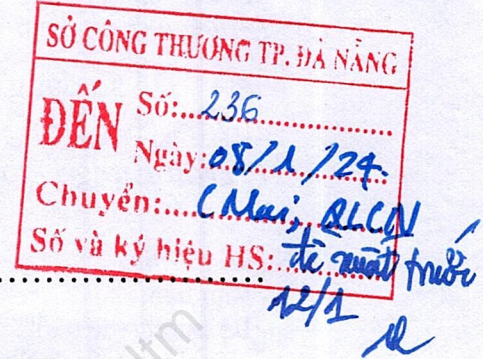 SỞ CÔNG THƯƠNG TP. ĐÀ NẴNG
ĐẾN
Số: 236
Ngày: 08/1/24.
Chuyển: C Mai; QLCN
Số và ký hiệu HS: đề xuất trước
12/1
ltm